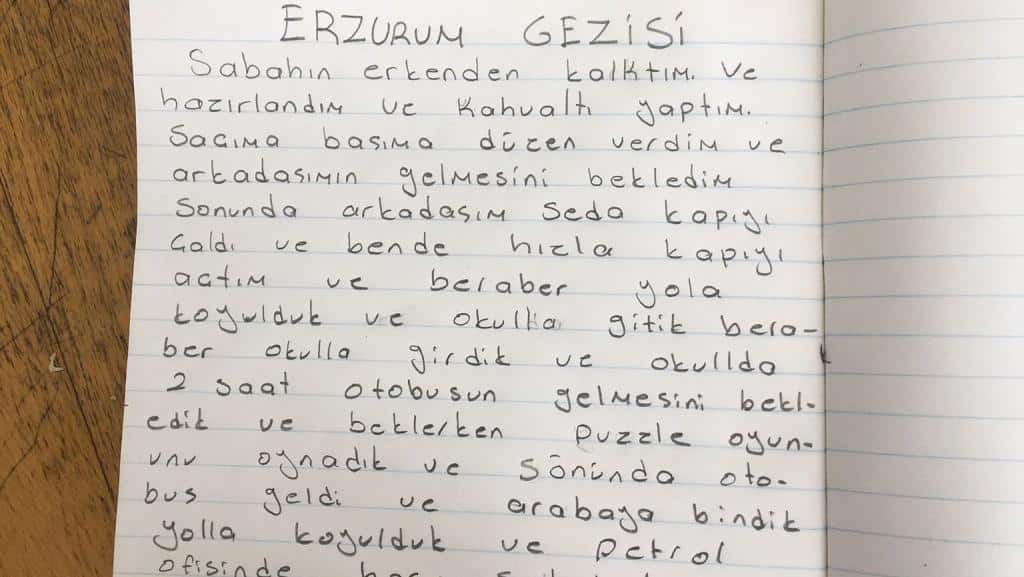 ERZURUM GEZİSİ
Sabahın erkenden kalktım. ve
hazırlandım ve kahvaltı yaptım.
Sacıma basıma düzen verdim ve
arkadasımın gelmesini bekledim
Sonunda arkadaşım Seda kapıyı
Galdı ve bende hızla kapıyı
actım ve beraber yola
koyulduk ve okulla gitik bera-
ber okulla girdik ve okullda
2 saat otobusun gelmesini bekl-
edik ve beklerken puzzle oyun-
unu oynadık ve sonunda oto-
bus geldi ve arabaya bindik
yolla koyulduk ve petrol
ofisinde